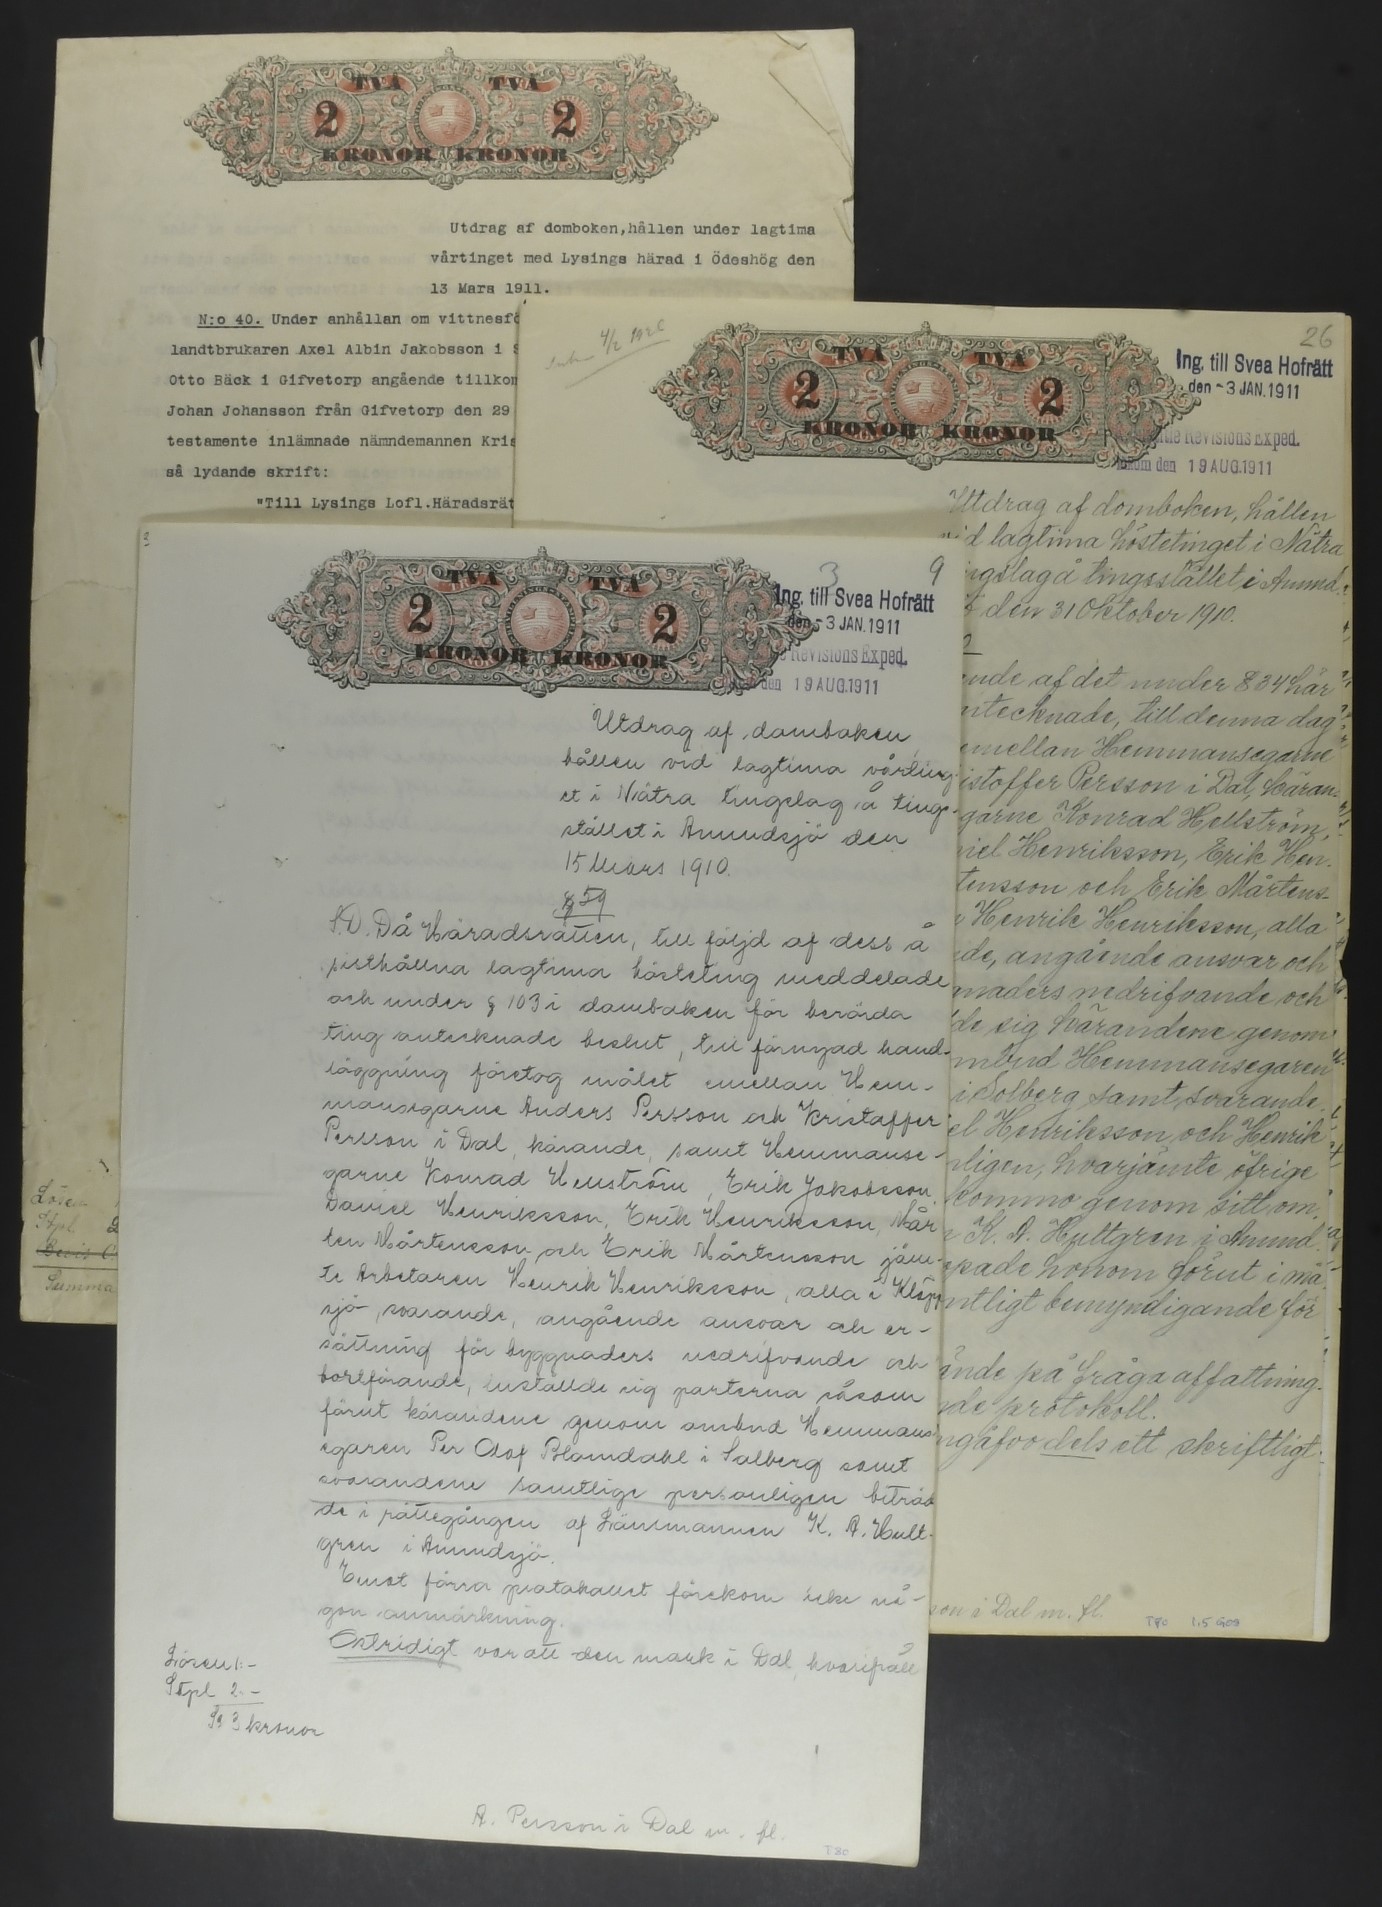 TVÅ TVÅ
2 2
KRONOR KRONOR
Utdrag af domboken,hållen under lagtima
vårtinget med Lysings härad i Ödeshög den
13 Mars 1911.
N:o 40. Under anhållan om vittnesfö
landtbrukaren Axel Albin Jakobsson i S
Otto Bäck i Gifvetorp angående tillkom
Johan Johansson från Gifvetorp den 29
testamente inlämnade nämndemannen Kris
så lydande skrift:
"Till Lysings Lofl.Häradsrät
Lösen
Stpl 2
Summa
26
TVÅ TVÅ
2 2
KRONOR KRONOR
Ing. till Svea Hofrätt
den - 3 JAN. 1911
Revisions Exped.
inkom den 19 AUG. 1911
Utdrag af domboken, hållen
vid lagtima höstetinget i Nätra
ingslag å tingsstället i Anund-
den 31 Oktober 1910.
ende af det under § 34 här
ntecknade, till denna dag
emellan Hemmansegarne
istoffer Persson i Dal, käran-
garne Konrad Hellström,
niel Henriksson, Erik Hen-
tensson och Erik Mårtens-
Henrik Henriksson, alla
de, angående ansvar och
naders nedrifvande och
de sig kärandene genom
mbud Hemmansegaren
i Solberg samt svarande
el Henriksson och Henrik
nligen, hvarjämte öfrige
kommo genom sitt om-
K. A. Hultgren i Anund-
pade honom förut i må
ntligt bemyndigande för
ände på fråga affattning-
de protokoll.
ngåfvo dels ett skriftligt
son i Dal m. fl.
T80 1,5 G09
3 9
TVÅ TVÅ
2 2
KRONOR KRONOR
Ing. till Svea Hofrätt
den - 3 JAN. 1911
Revisions Exped.
den 19 AUG. 1911
Utdrag af domboken,
hållen vid lagtima vårting-
et i Nätra tingslag å tings-
stället i Anundsjö den
15 Mars 1910.
§ 59
S.D. Då Häradsrätten, till följd af dess å
sisthållna lagtima hösteting meddelade
och under § 103 i domboken för berörda
ting antecknade beslut, till förnyad hand-
läggning företog målet emellan Hem-
mansegarne Anders Persson och Kristoffer
Persson i Dal, kärande, samt Hemmanse-
garne Konrad Hellström, Erik Jakobsson,
Daniel Henriksson, Erik Henriksson, Mår
ten Mårtensson och Erik Mårtensson jäm-
te Arbetaren Henrik Henriksson, alla i Klöpp
sjö, svarande, angående ansvar och er-
sättning för byggnaders nedrifvande och
bortförande, inställde sig parterna såsom
förut kärandene genom ombud Hemmans
egaren Per Olof Blomdahl i Solberg samt
svarandene samtlige personligen biträd
de i rättegången af Länsmannen K. A. Hult-
gren i Anundsjö.
Emot förra protokollet förekom icke nå-
gon anmärkning.
Ostridigt var att den mark i Dal, hvarifrån
Lösen 1:-
Stpl 2.-
Sa 3 kronor
A. Persson i Dal m. fl.
T80